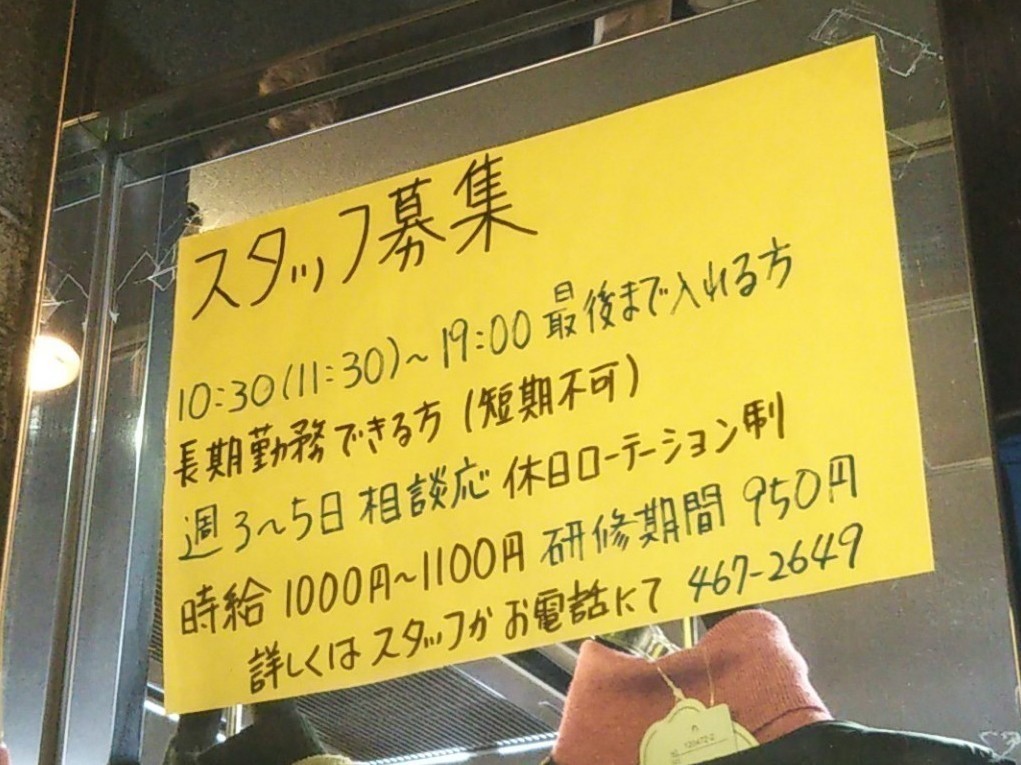 スタッフ募集
10:30(11:30)~19:00 最後まで入れる方
長期勤務できる方(短期不可)
週3~5日 相談応 休日ローテーション制
時給1000円~1100円 研修期間 950円
詳しくはスタッフかお電話にて 467-2649